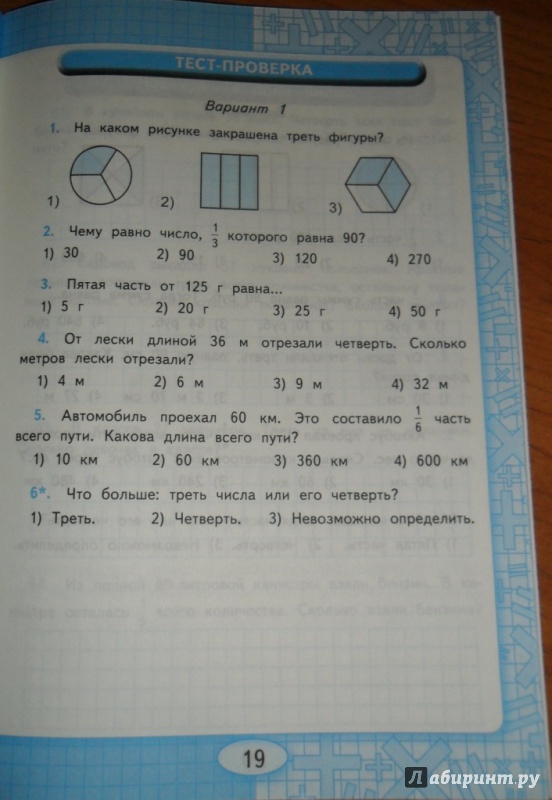 ТЕСТ-ПРОВЕРКА
Вариант 1
1. На каком рисунке закрашена треть фигуры?
1) 2) 3)
2. Чему равно число, 1/3 которого равна 90?
1) 30 2) 90 3) 120 4) 270
3. Пятая часть от 125 г равна...
1) 5 г 2) 20 г 3) 25 г 4) 50 г
4. От лески длиной 36 м отрезали четверть. Сколько
метров лески отрезали?
1) 4 м 2) 6 м 3) 9 м 4) 32 м
5. Автомобиль проехал 60 км. Это составило 1/6 часть
всего пути. Какова длина всего пути?
1) 10 км 2) 60 км 3) 360 км 4) 600 км
6*. Что больше: треть числа или его четверть?
1) Треть. 2) Четверть. 3) Невозможно определить.
19
Лабиринт.ру